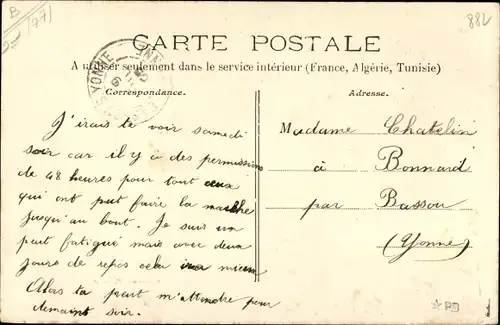 B
(77)
882
CARTE POSTALE
A utiliser seulement dans le service intérieur (France, Algérie, Tunisie)
YONNE
Correspondance.
Adresse.
J'irais te voir samedi
soir car il y à des permissions
de 48 heures pour tout ceux
qui ont put faire la marche
jusqu'au bout. Je suis un
peut fatigué mais avec deux
jours de repos cela ira mieux
Alors ta peut m'attendre pour
demaint soir.
Madame Chatelin
à Bonnard
par Bassou
(Yonne)
PD